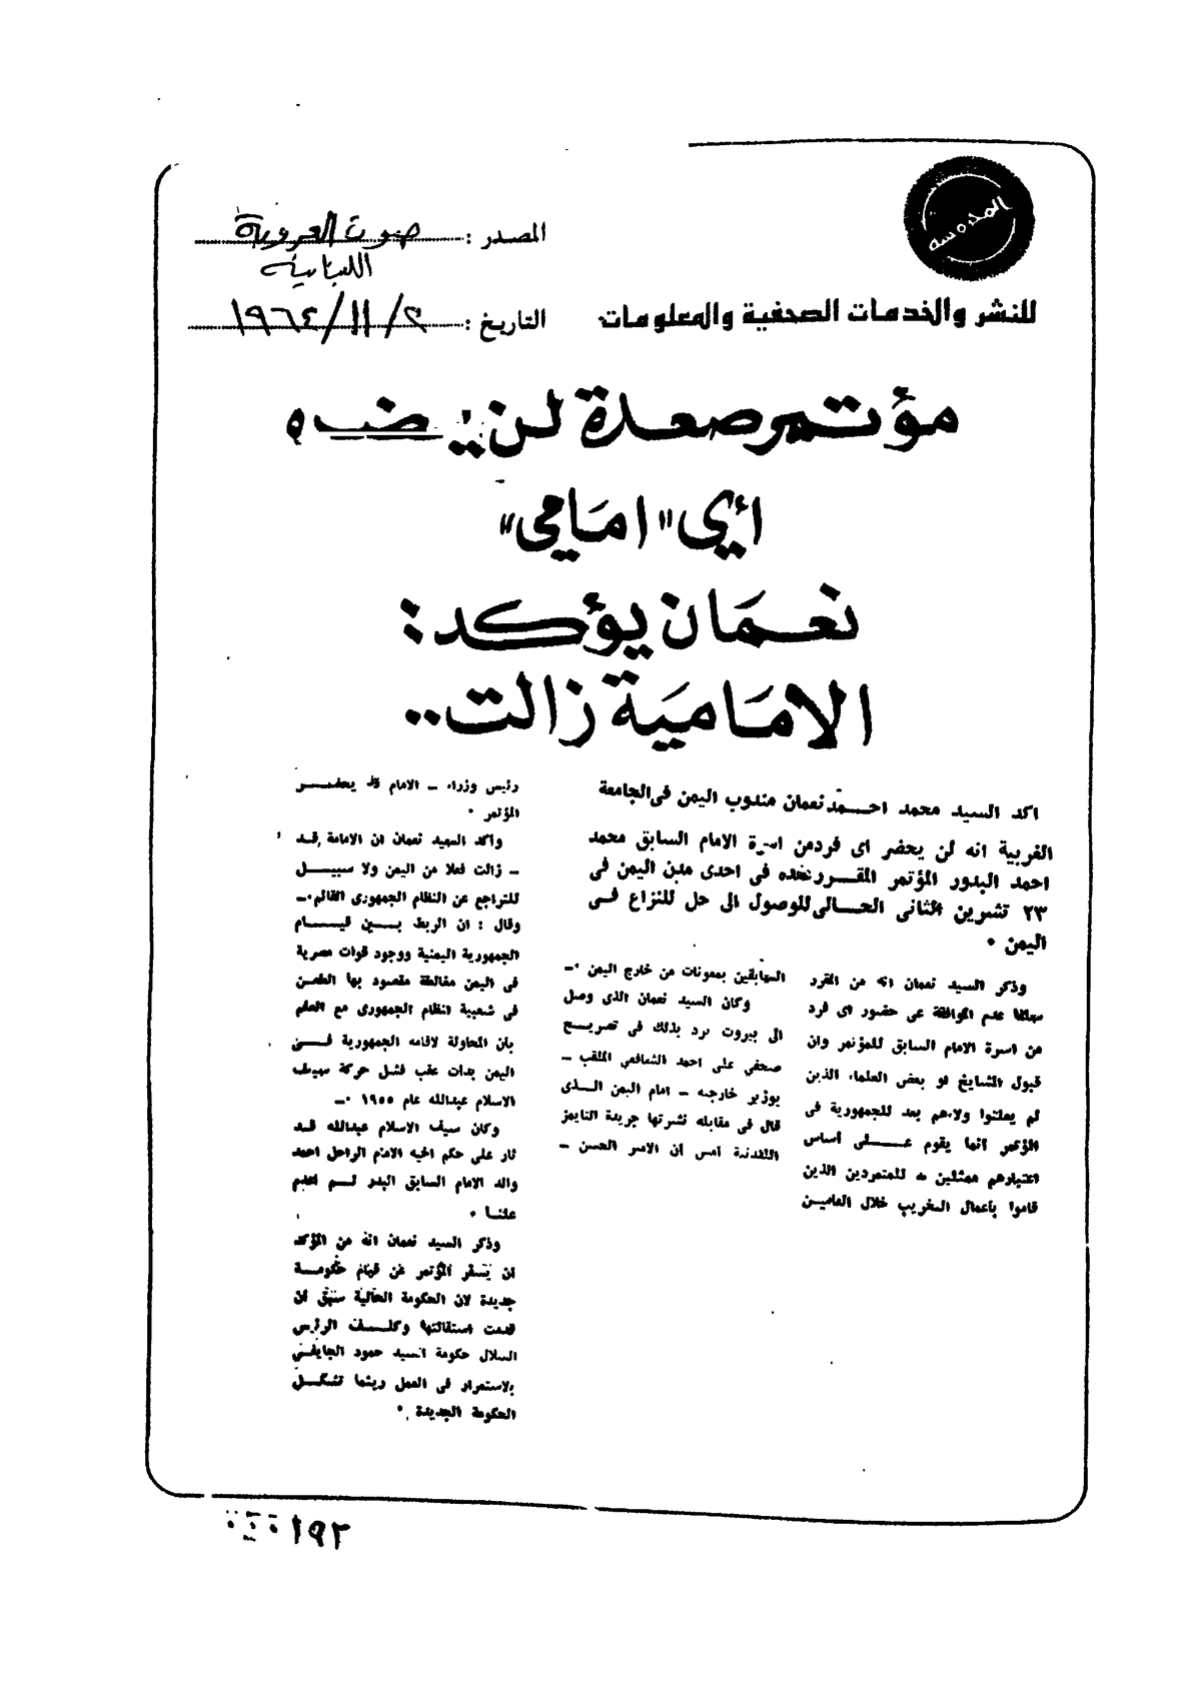 المدرسه
المصدر : صوت العروبة
اللبنانية
للنشر والخدمات الصحفية والمعلومات
التاريخ : ٢/١١/١٩٦٤
مؤتمر صعدة لن
أي "امامي"
نعمان يؤكد :
الامامية زالت ..
اكد السيد محمد احمد نعمان مندوب اليمن فى الجامعة
العربية انه لن يحضر اى فرد من اسرة الامام السابق محمد
احمد البدور المؤتمر المقرر عقده فى احدى مدن اليمن فى
٢٣ تشرين الثانى الحالى للوصول الى حل للنزاع فى
اليمن .
وذكر السيد نعمان انه من المقرر
عدم الموافقة على حضور اى فرد
من اسرة الامام السابق للمؤتمر وان
قبول المشايخ او بعض العلماء الذين
لم يعلنوا ولاءهم بعد للجمهورية فى
المؤتمر انما يقوم على أساس
اعتبارهم ممثلين للمتمردين الذين
قاموا بأعمال التخريب خلال العامين
السابقين بمعونات من خارج اليمن .-
وكان السيد نعمان الذى وصل
الى بيروت يرد بذلك فى تصريح
صحفي على احمد الشامى الملقب -
بوزير خارجيه - امام اليمن الذى
قال فى مقابله نشرتها جريدة التايمز
اللندنية امس أن الامير الحسن -
رئيس وزراء - الامام قد يحضر
المؤتمر .
وأكد السيد نعمان ان الامامة قد
- زالت فعلا من اليمن ولا سبيل
للتراجع عن النظام الجمهورى القائم .-
وقال : ان الربط بين قيام
الجمهورية اليمنية ووجود قوات مصرية
فى اليمن مغالطة مقصود بها الطعن
فى شعبية النظام الجمهورى مع العلم
بان المحاولة لاقامة الجمهورية فى
اليمن بدات عقب فشل حركة سيف
الاسلام عبدالله عام ١٩٥٥ .-
وكان سيف الاسلام عبدالله قد
ثار على حكم اخيه الامام الراحل احمد
والد الامام السابق البدر ثم اعدم
علنا .
وذكر السيد نعمان انه من المؤكد
ان يسفر المؤتمر عن قيام حكومة
جديدة لان الحكومة الحالية سبق ان
قدمت استقالتها وكلف الرئيس
السلال حكومة السيد حمود الجايفي
بالاستمرار فى العمل ريثما تشكل
الحكومة الجديدة .
١٩٢